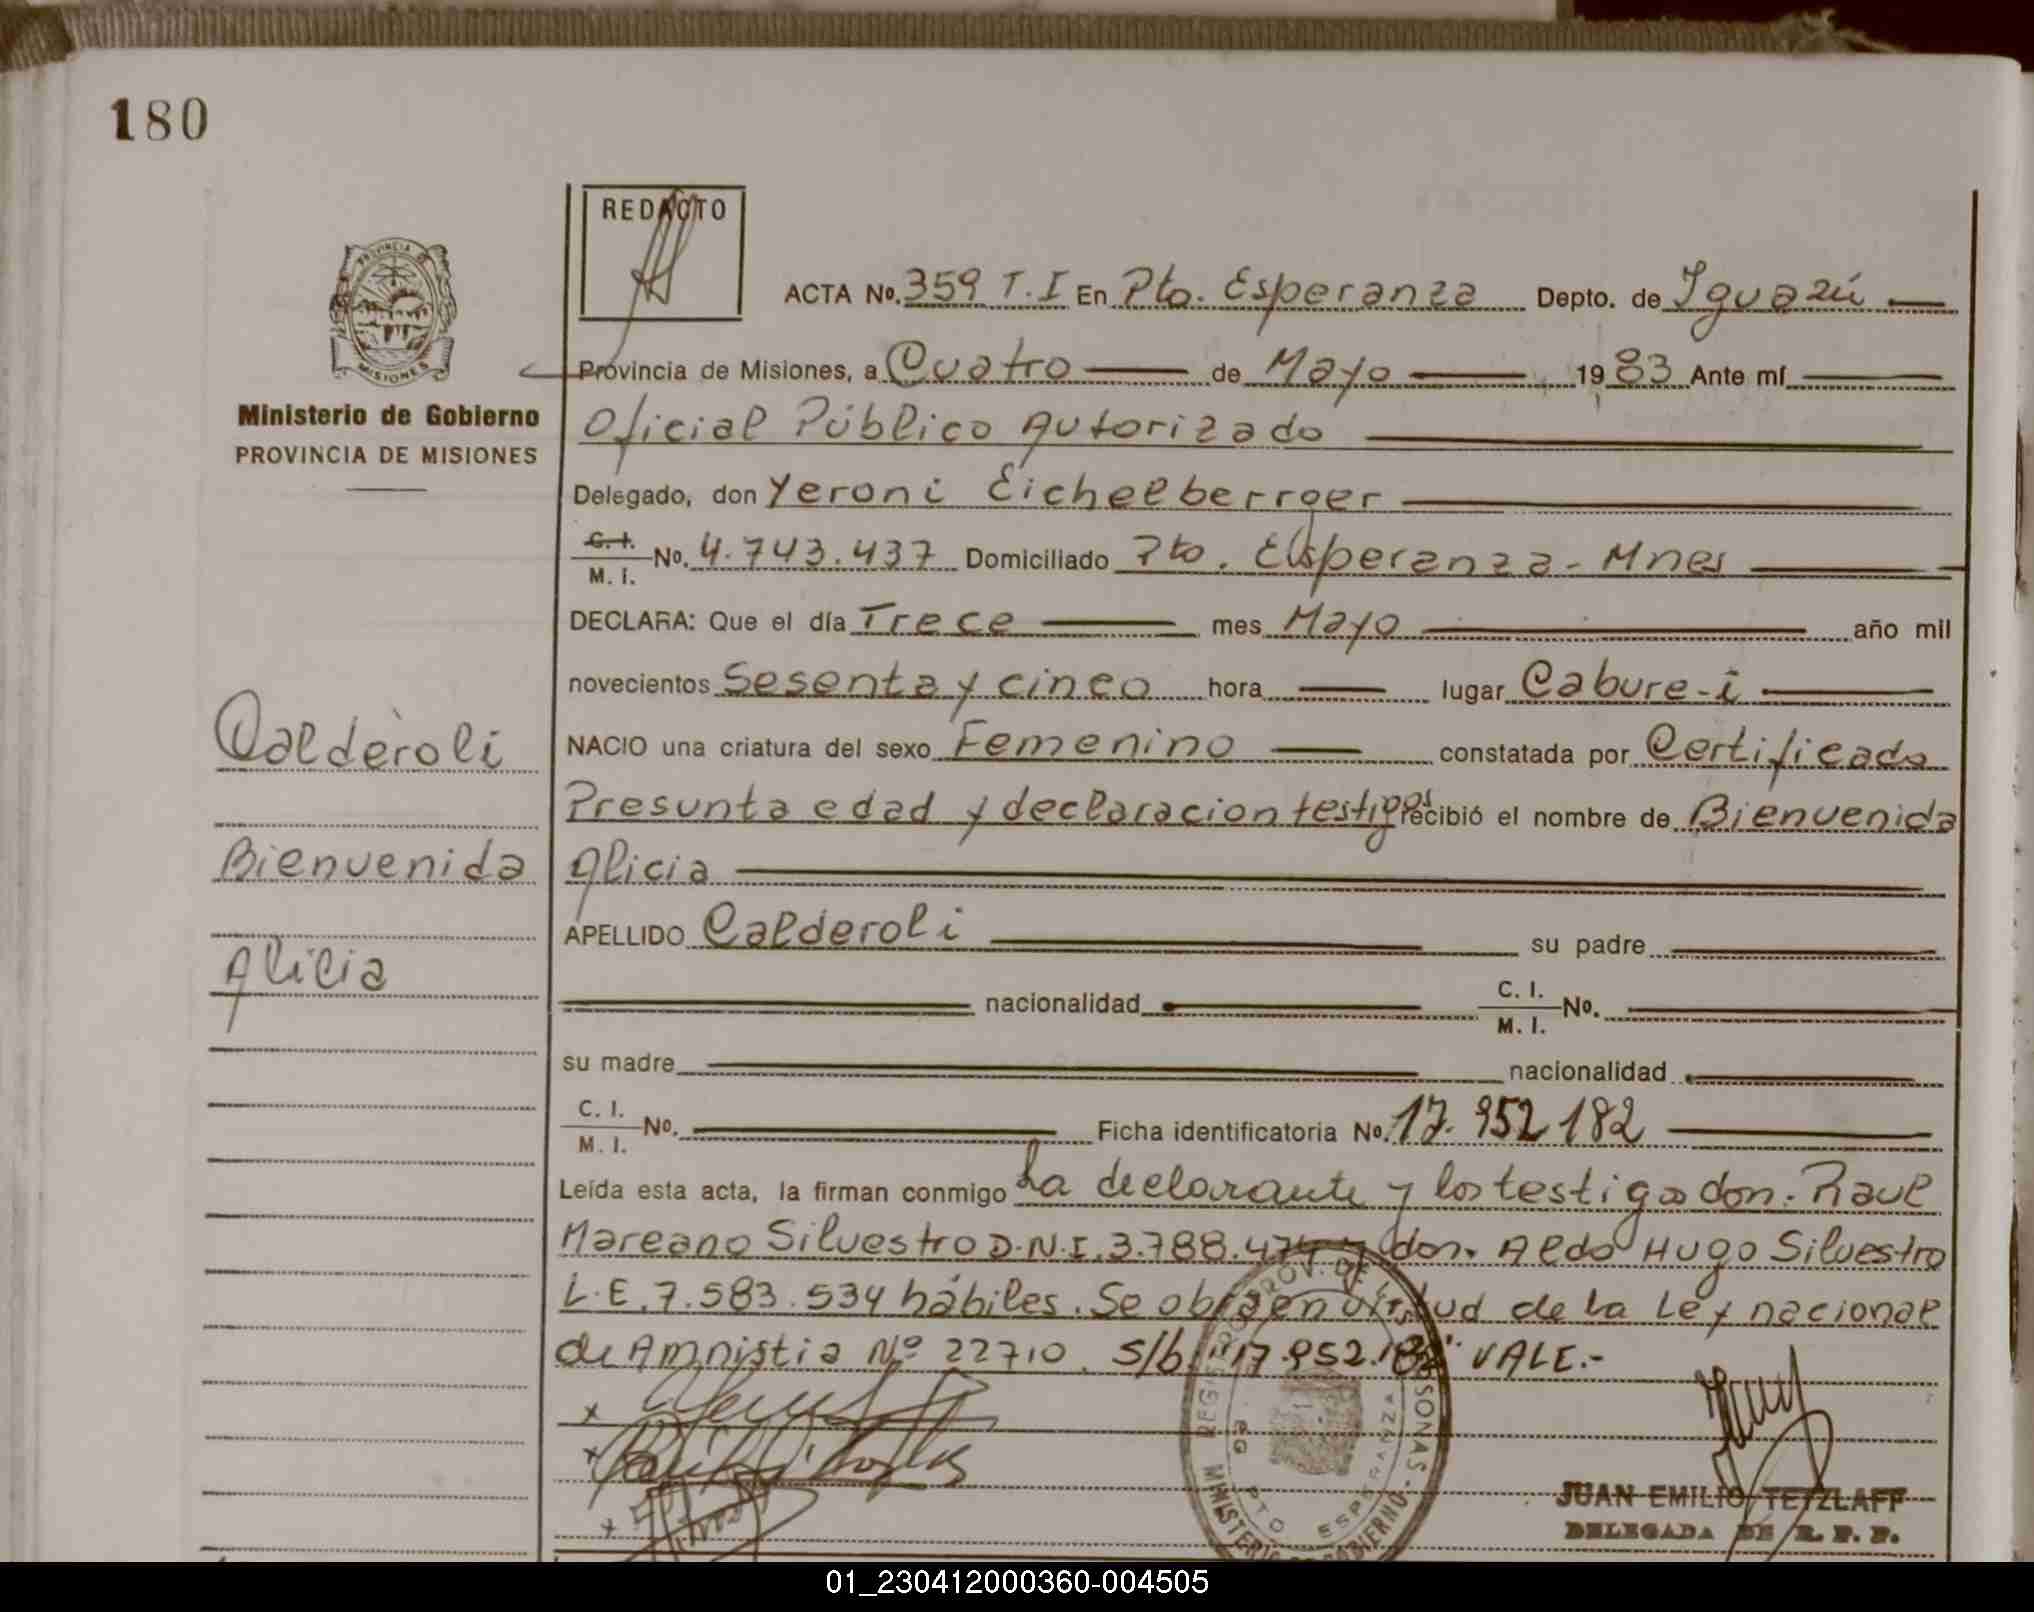 180
REDACTO
ACTA No. 359 T.I En Pto. Esperanza Depto. de Iguazú
Provincia de Misiones, a Cuatro de Mayo 1983 Ante mí
Ministerio de Gobierno
PROVINCIA DE MISIONES
Oficial Público Autorizado
Delegado, don Yeroni Eichelberrger
C. I. / M. I. No. 4.743.437 Domiciliado Pto. Esperanza - Mnes
DECLARA: Que el día Trece mes Mayo año mil
novecientos Sesenta y cinco hora lugar Cabure-i
Calderoli
NACIO una criatura del sexo Femenino constatada por Certificado
Presunta edad y declaracion testigos recibió el nombre de Bienvenida
Bienvenida
Alicia
APELLIDO Calderoli su padre
Alicia
nacionalidad C. I. / M. I. No.
su madre nacionalidad
C. I. / M. I. No. Ficha identificatoria No. 17.952.182
Leída esta acta, la firman conmigo La declarante y los testigos don. Raul
Mareano Silvestro D.N.I. 3.788.474 y don. Aldo Hugo Silvestro
L.E. 7.583.534 hábiles. Se obra en virtud de la Ley nacional
de Amnistia Nº 22710. S/b. "17.952.182" VALE.-
MINISTERIO DE GOBIERNO
PTO ESPERANZA
JUAN EMILIO TETZLAFF
DELEGADA DE R. P. P.
01_230412000360-004505